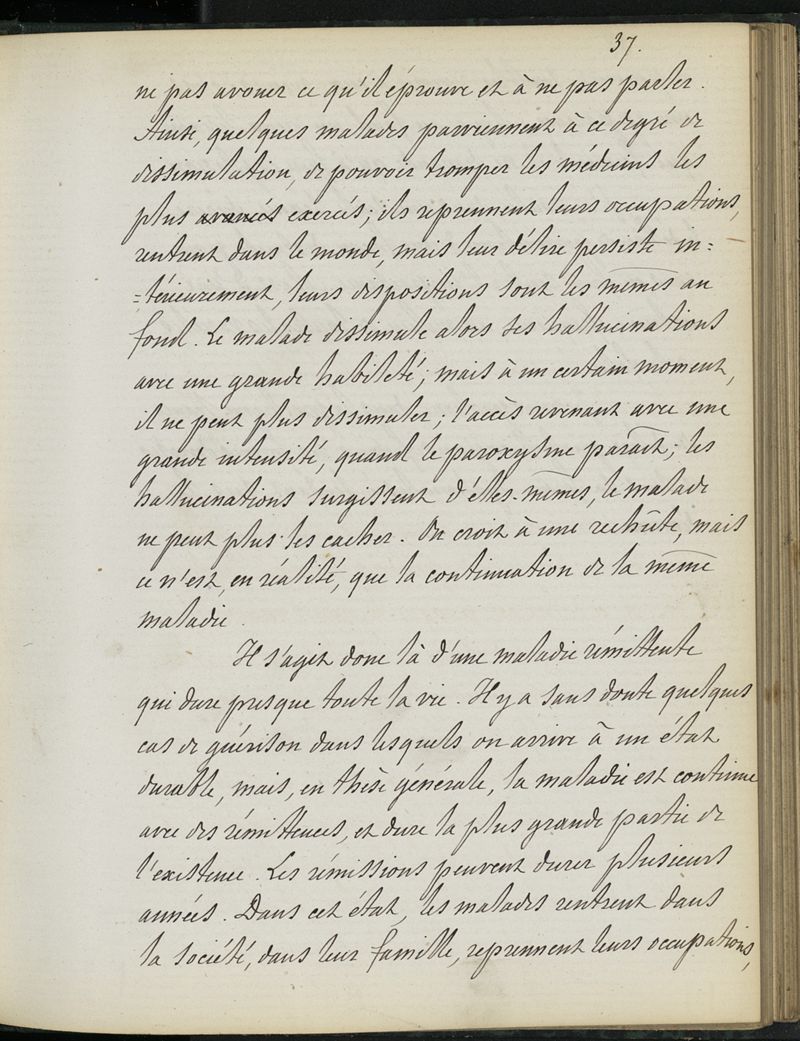 37.
ne pas avouer ce qu'il éprouve et à ne pas parler.
Ainsi, quelques malades parviennent à ce degré de
dissimulation, de pouvoir tromper les médecins les
plus avancés exercés; ils reprennent leurs occupations,
rentrent dans le monde, mais leur délire persiste in=
=térieurement, leurs dispositions sont les mêmes au
fond. Le malade dissimule alors ses hallucinations
avec une grande habileté; mais à un certain moment,
il ne peut plus dissimuler; l'accès revenant avec une
grande intensité, quand le paroxysme paraît; les
hallucinations surgissent d'elles-mêmes, le malade
ne peut plus les cacher. On croit à une rechûte, mais
ce n'est, en réalité, que la continuation de la même
maladie.
Il s'agit donc là d'une maladie rémittente
qui dure presque toute la vie. Il y a sans doute quelques
cas de guérison dans lesquels on arrive à un état
durable, mais, en thèse générale, la maladie est continue
avec des rémittences, et dure la plus grande partie de
l'existence. Les rémissions peuvent durer plusieurs
années. Dans cet état, les malades rentrent dans
la société, dans leur famille, reprennent leurs occupations,